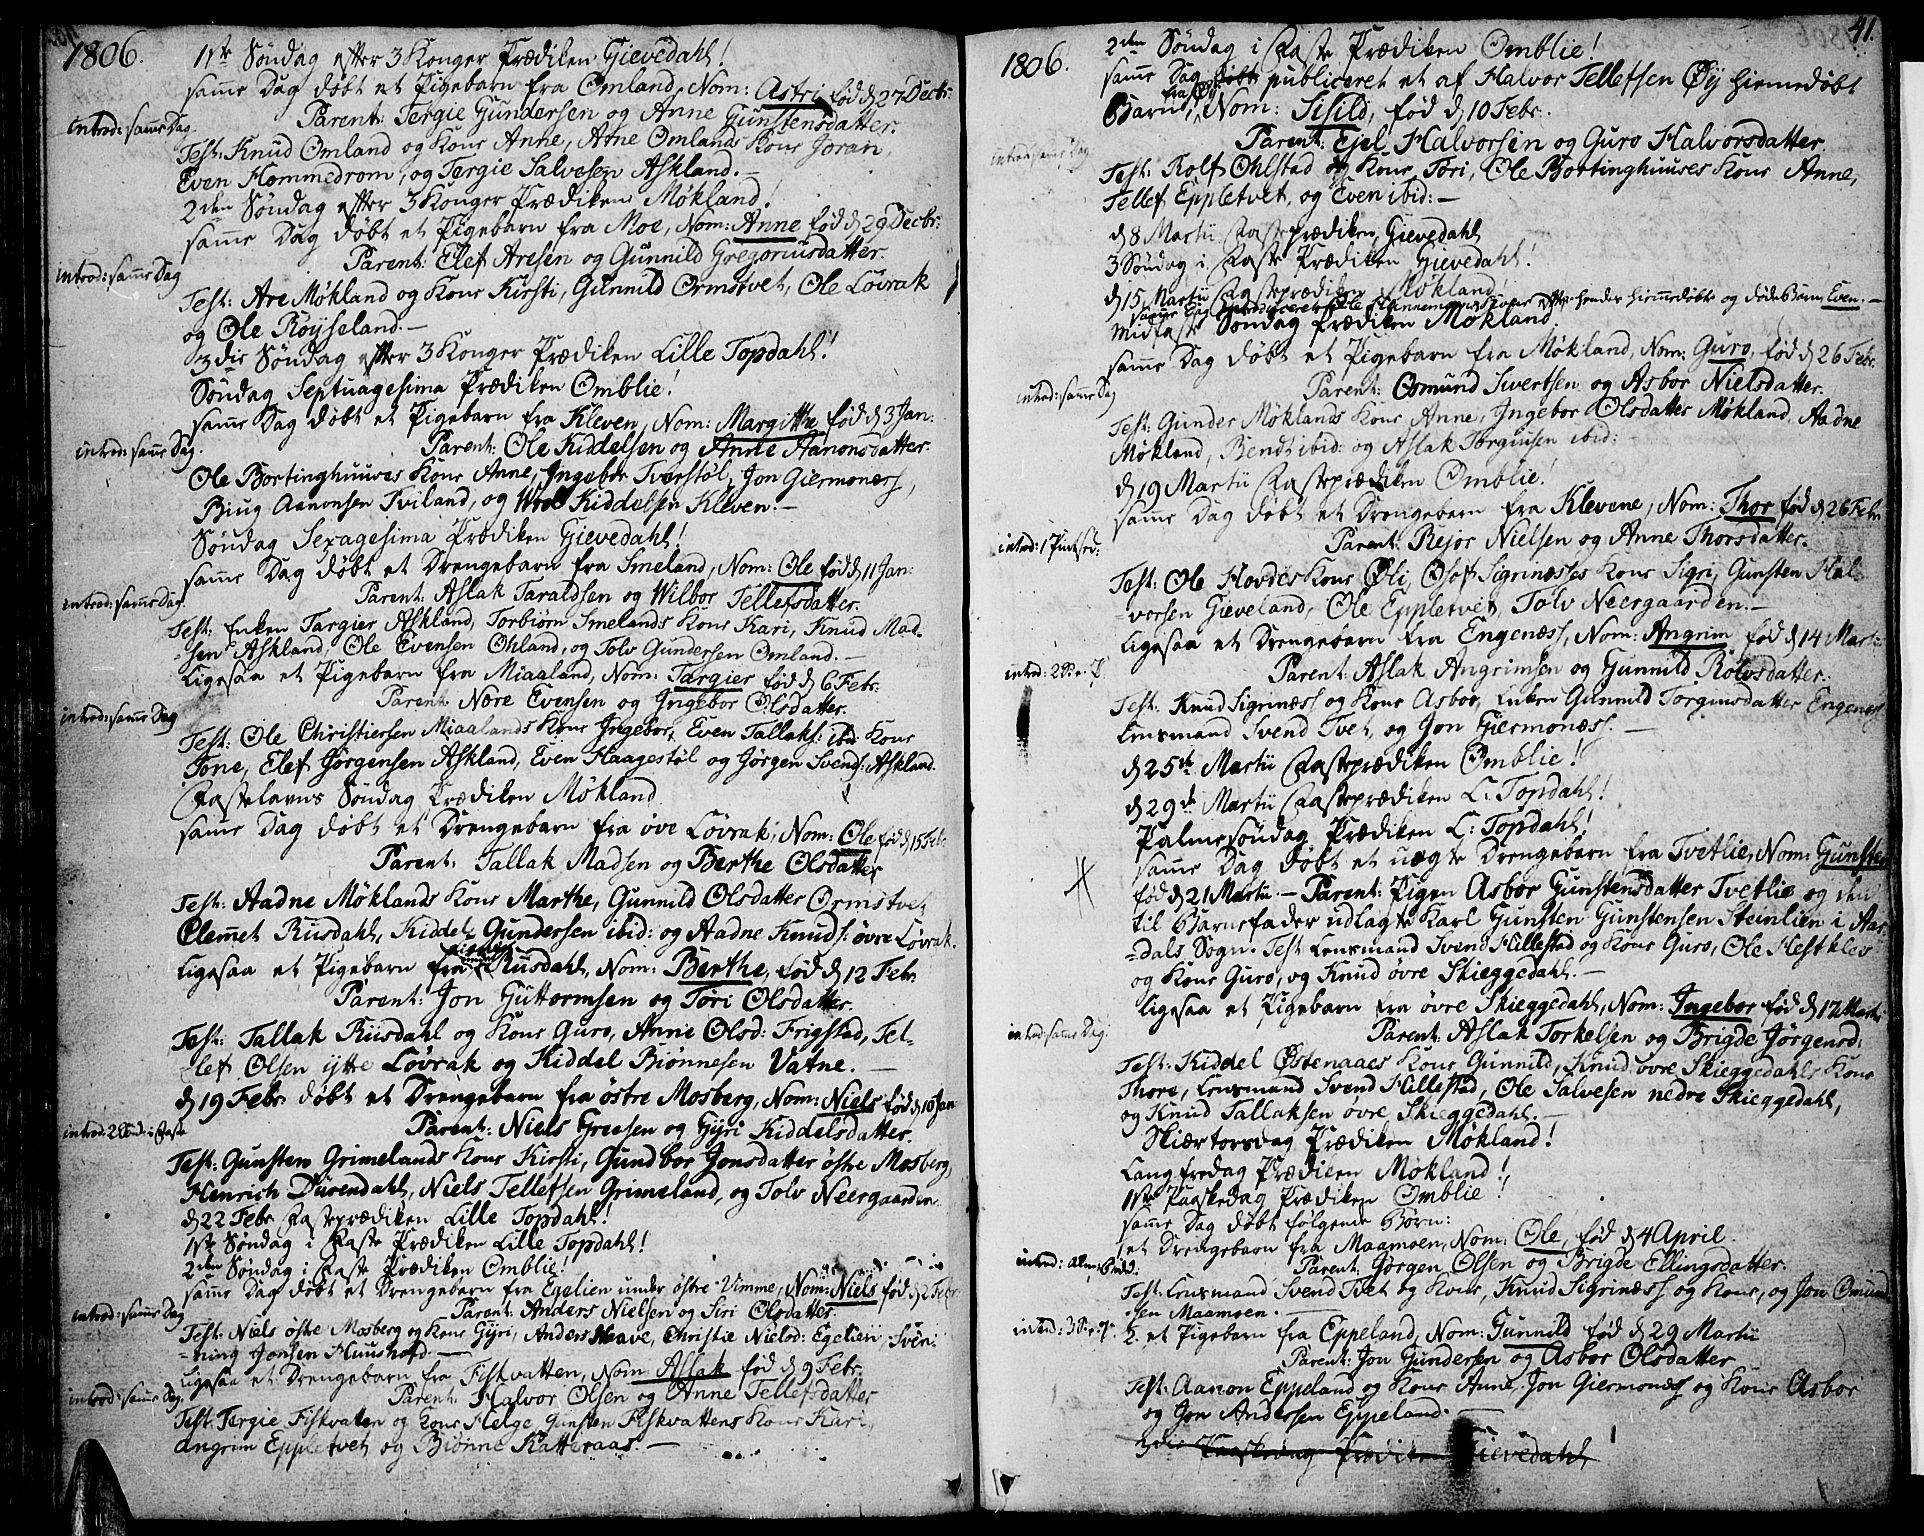 1806.
1ste Søndag efter 3 Konger Prædiken Gievedahl!
samme Dag døbt et Pigebarn fra Omland, Nom: Astri fød d 27 Decbr.
Parent: Tergie Gundersen og Anne Gunstensdatter.
introd: samme Dag.
Test: Knud Omland og Kone Anne, Aane Omlands Kone Joran,
Even Hommedrom, og Tergie Salvesen Askland.-
2den Søndag efter 3 Konger Prædiken Møkland!
samme Dag døbt et Pigebarn fra Moe, Nom: Anne fød d 29 Decbr:
Parent: Elef Aresen og Gunnild Gregoriusdatter.
introd: samme Dag
Test: Are Møkland og Kone Kirsti, Gunnild Ormstvet, Ole Løvrak
og Ole Røyseland.-
3die Søndag efter 3 Konger Prædiken Lille Topdahl!
Søndag Septuagesima Prædiken Omblie!
samme Dag døbt et Pigebarn fra Kleven, Nom: Margitthe fød d 3 Jan:
Parent: Ole Kiddelsen og Anne Aanonsdatter.
introd: samme Dag.
Ole Bortinghuuses Kone Anne, Ingebor Tverstøl, Jon Giermonæss,
Biug Aanonsen Tviland, og Kiddelsen Kleven.-
Søndag Sexagesima Prædiken Gievedahl!
samme Dag døbt et Drengebarn fra Smeland, Nom: Ole fød d 11 Jan:
Parent: Aslak Taraldsen og Wilbor Tellefsdatter.
introd: samme Dag.
Test: Enken Targier Askland, Torbiørn Smelands Kone Kari, Knud Mad-
-sen Askland, Ole Evensen Ohland, og Tolv Gundersen Omland.-
Ligesaa et Pigebarn fra Miaaland, Nom: Targier fød d 6 Febr.
Parent: Nøre Evensen og Ingebor Olsdatter.
introd: samme Dag
Test: Ole Christiersen Miaalands Kone Ingebor, Even Tallaks: ibd: Kone
Tone, Elef Jørgensen Askland, Even Haagestøl og Jørgen Svends: Askland.
Fastelavns Søndag Prædiken Møkland
samme Dag døbt et Drengebarn fra øve Løvrak, Nom: Ole fød d 15 Febr
Parent: Tallak Madsen og Berthe Olsdatter
Test: Aadne Møklands Kone Marthe, Gunnild Olsdatter Ormstvet
Clemmet Risdahl, Kiddel Gundersen ibid: og Aadne Knuds: øvre Løvrak.
Ligesaa et Pigebarn fra Riisdahl, Nom: Berthe, fød d 12 Febr.
Parent: Jon Guttormsen og Tøri Olsdatter.
Test: Tallak Riisdahl og Kone Guro, Anne Olsd: Frigstad, Tel-
-lef Olsen ytre Løvrak og Kiddel Biønnesen Vatne.-
d 19 Febr: døbt et Drengebarn fra østre Mosberg, Nom: Niels fød d 10 Jan
Parent: Niels Greesen og Gyri Kiddelsdatter.
introd: 2 Sønd: i Faste
Test: Gunsten Grimelands Kone Kirsti, Gundbor Jonsdatter østre Mosberg,
Henrich Dürendahl, Niels Tellefsen Grimeland, og Tolv Neergaarden
d 22 Febr Fasteprædiken Lille Topdahl!
1ste Søndag i Faste Prædiken Lille Topdahl!
2den Søndag i Faste Prædiken Omblie!
samme Dag døbt et Drengebarn fra Egelien under østre Vimme, Nom: Niels fød d 2 Febr.
Parent: Anders Nielsen og Siri Olsdatter.
introd: samme Dag
Test: Niels østre Mosberg og Kone Gyri, Anders Heave, Christie Nielsd: Egelien Sven-
-ning Jonsen Huushoed.-
Ligesaa et Drengebarn fra Fiskvatten, Nom: Aslak fød d 9 Febr.
Parent: Halvor Olsen og Anne Tellefsdatter
introd: samme Dag
Test: Tergie Fiskvatten og Kone Helge, Gunsten Fiskvattens Kone Kari
Angrim Eppletvet og Biønne Katteraas.-
41.
1806.
2den Søndag i Faste Prædiken Omblie!
samme Dag publiceret et af Halvor Tellefsen Øy hiemmedøbt
Barn, Nom: Sisild, fød d 10 Febr.
Parent: Ejel Halvorsen og Guro Halvorsdatter.
introd: samme Dag
Test: Rolf Ohlstad og Kone Tøri, Ole Bortinghuuses Kone Anne,
Tellef Eppletvet, og Even ibid:-
d 8 Martii Fasteprædiken Gievedahl
3 Søndag i Faste Prædiken Gievedahl!
d 15 Martii Fasteprædiken Møkland!
samme Dag hiemmedøbte og døde Barn Even.-
Midfaste Søndag Prædiken Møkland
samme Dag døbt et Pigebarn fra Møkland, Nom: Guro, fød d 26 Febr.
Parent: Osmund Sivertsen og Asbor Nielsdatter.
introd: samme Dag
Test: Gunder Møklands Kone Anne, Ingebor Olsdatter Møkland, Aadne
Møkland, Bendt ibid: og Aslak Torgiusen ibid:-
d 19 Martii Fasteprædiken Omblie!
samme Dag døbt et Drengebarn fra Klevene, Nom: Thor fød d 26 Febr
Parent: Rejor Nielsen og Anne Thorsdatter.
introd: 1 Pintsed:
Test: Ole Hovdes Kone Øli, Olof Sigrinæsses Kone Sigri, Gunsten Hal-
-vorsen Gieveland, Ole Eppletvet, Tolv Neergaarden.-
Ligesaa et Drengebarn fra Engenæss, Nom: Angrim fød d 14 Marti
Parent: Aslak Angrimsen og Gunnild Rolvsdatter.
introd: 2 S: e: P
Test: Knud Sigrinæss og Kone Asbor, Enken Gunnild Torgimsdatter Engenæss
Lensmand Svend Tvet, og Jon Giermonæss.-
d 25de Martii Fasteprædiken Omblie!
d 29de Martii Fasteprædiken L: Topdahl!
Palmesøndag Prædiken L: Topdahl!
samme Dag døbt et uægte Drengebarn fra Tvetlie, Nom: Gunsten
fød d 21 Martii.- Parent: Pigen Asbor Gunstensdatter Tvetlie og den
til Barnefader udlagte Karl Gunsten Gunstensen Steinlien i Aar-
-dals Sogn. Test: Lensmand Svend Hillestad og Kone Guro, Ole Hestklev
og Kone Guro, og Knud øvre Skieggedahl.-
Ligesaa et Pigebarn fra øvre Skieggedahl, Nom: Ingebor fød d 12 Martii
Parent: Aslak Torkelsen og Brigde Jørgensd:
introd: samme Dag
Test: Kiddel Østenaaes Kone Gunnild, Knud øvre Skieggedahls Kone
Thore, Lensmand Svend Hillestad, Ole Salvesen nedre Skieggedahl,
og Knud Tallaksen øvre Skieggedahl.-
Skiærtorsdag Prædiken Møkland!
Langfredag Prædiken Møkland!
1ste Paaskedag Prædiken Omblie!
samme Dag døbt følgende Børn:
1 et Drengebarn fra Maamoen, Nom: Ole, fød d 4 April.
Parent: Jørgen Olsen og Brigde Ellingsdatter.
Test: Lensmand Svend Tvet og Kone, Knud Sigrinæss og Kone, og Jon Omund-
-sen Maamoen.
introd: 3 S: e: P.
2. et Pigebarn fra Eppeland, Nom: Gunnild fød d 29 Martii
Parent: Jon Gundersen og Asbor Olsdatter
Test: Aanon Eppeland og Kone Anne, Jon Giermonæss og Kone Asbor
og Jon Andersen Eppeland.
3die Paaskedag Prædiken Gievedahl